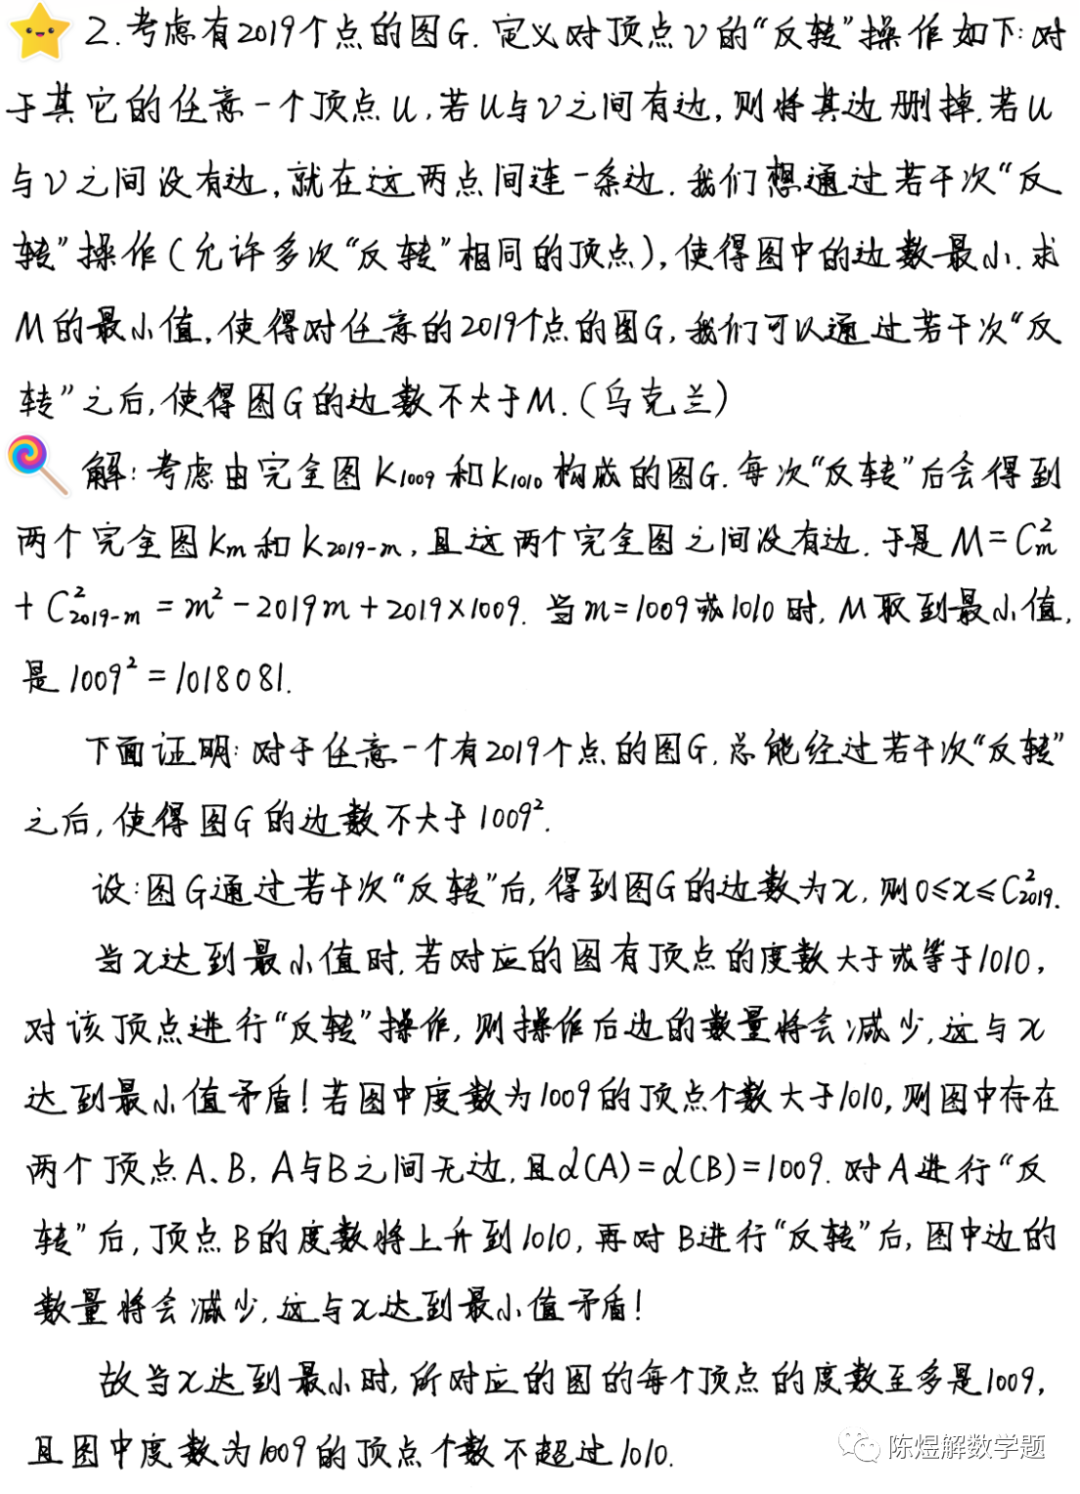 2.考虑有2019个点的图G.定义对顶点v的“反转”操作如下:对
于其它的任意一个顶点u,若u与v之间有边,则将其边删掉.若u
与v之间没有边,就在这两点间连一条边.我们想通过若干次“反
转”操作(允许多次“反转”相同的顶点),使得图中的边数最小.求
M的最小值,使得对任意的2019个点的图G,我们可以通过若干次“反
转”之后,使得图G的边数不大于M.(乌克兰)
解:考虑由完全图K₁₀₀₉和K₁₀₁₀构成的图G.每次“反转”后会得到
两个完全图Kₘ和K₂₀₁₉₋ₘ,且这两个完全图之间没有边.于是M=C²ₘ
+C²₂₀₁₉₋ₘ=m²-2019m+2019×1009.当m=1009或1010时,M取到最小值,
是1009²=1018081.
下面证明:对于任意一个有2019个点的图G,总能经过若干次“反转”
之后,使得图G的边数不大于1009².
设:图G通过若干次“反转”后,得到图G的边数为x,则0≤x≤C²₂₀₁₉.
当x达到最小值时,若对应的图有顶点的度数大于或等于1010,
对该顶点进行“反转”操作,则操作后边的数量将会减少,这与x
达到最小值矛盾!若图中度数为1009的顶点个数大于1010,则图中存在
两个顶点A、B,A与B之间无边,且d(A)=d(B)=1009.对A进行“反
转”后,顶点B的度数将上升到1010,再对B进行“反转”后,图中边的
数量将会减少,这与x达到最小值矛盾!
故当x达到最小时,所对应的图的每个顶点的度数至多是1009,
且图中度数为1009的顶点个数不超过1010.
陈煜解数学题